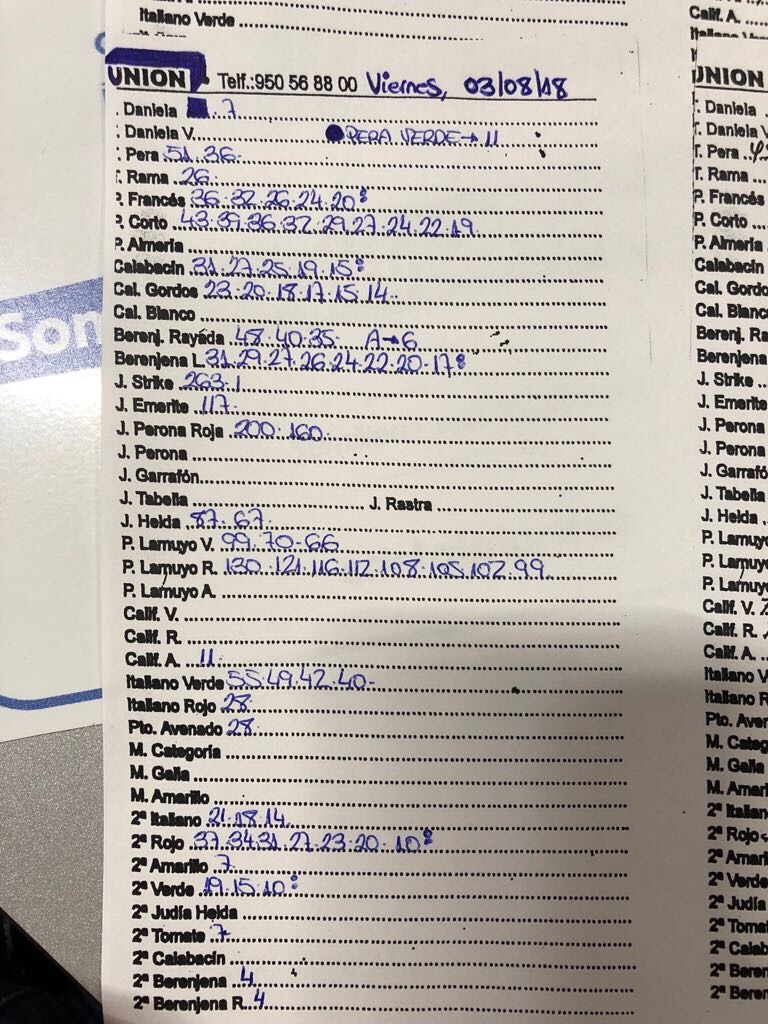 Italiano Verde
Calif. A.
UNION Telf.:950 56 88 00 Viernes, 03/08/18
. Daniela 7
. Daniela V. PERA VERDE→ 11
. Pera 51. 36.
T. Rama 26.
P. Francés 36.32.26.24.20
P. Corto 43.39.36.32.29.27.24.22.19.
P. Almería
Calabacín 31.27.25.19.15
Cal. Gordos 23.20.18.17.15.14.
Cal. Blanco
Berenj. Rayada 48.40.35. A→6
Berenjena L. 31.29.27.26.24.22.20.17
J. Strike 263.
J. Emerite 117.
J. Perona Roja 200. 160.
J. Perona
J. Garrafón
J. Tabella J. Rastra
J. Helda 87. 67.
P. Lamuyo V. 99. 70-66
P. Lamuyo R. 130. 121.116.112.108.105.102.99
P. Lamuyo A.
Calif. V.
Calif. R.
Calif. A. 11.
Italiano Verde 55.49.42.40-
Italiano Rojo 28.
Pto. Avenado 28.
M. Categoría
M. Galia
M. Amarillo
2ª Italiano 21.18.14.
2ª Rojo 37.34.31.27.23.20.10
2ª Amarillo 7.
2ª Verde 19.15.10
2ª Judía Helda
2ª Tomate 7.
2ª Calabacín
2ª Berenjena 4.
2ª Berenjena R. 4.
Son
UNION
. Daniela
. Daniela V
T. Pera
T. Rama
P. Francés
P. Corto
P. Almería
Calabacín
Cal. Gordo
Cal. Blanc
Berenj. Ra
Berenjena
J. Strike
J. Emerite
J. Perona
J. Perona
J. Garrafó
J. Tabella
J. Helda
P. Lamuyo
P. Lamuyo
P. Lamuyo
Calif. V.
Calif. R.
Calif. A.
Italiano V
Italiano R
Pto. Aver
M. Categ
M. Galia
M. Amari
2ª Italian
2ª Rojo
2ª Amari
2ª Verde
2ª Judía
2ª Toma
2ª Calab
2ª Beren
2ª Beren